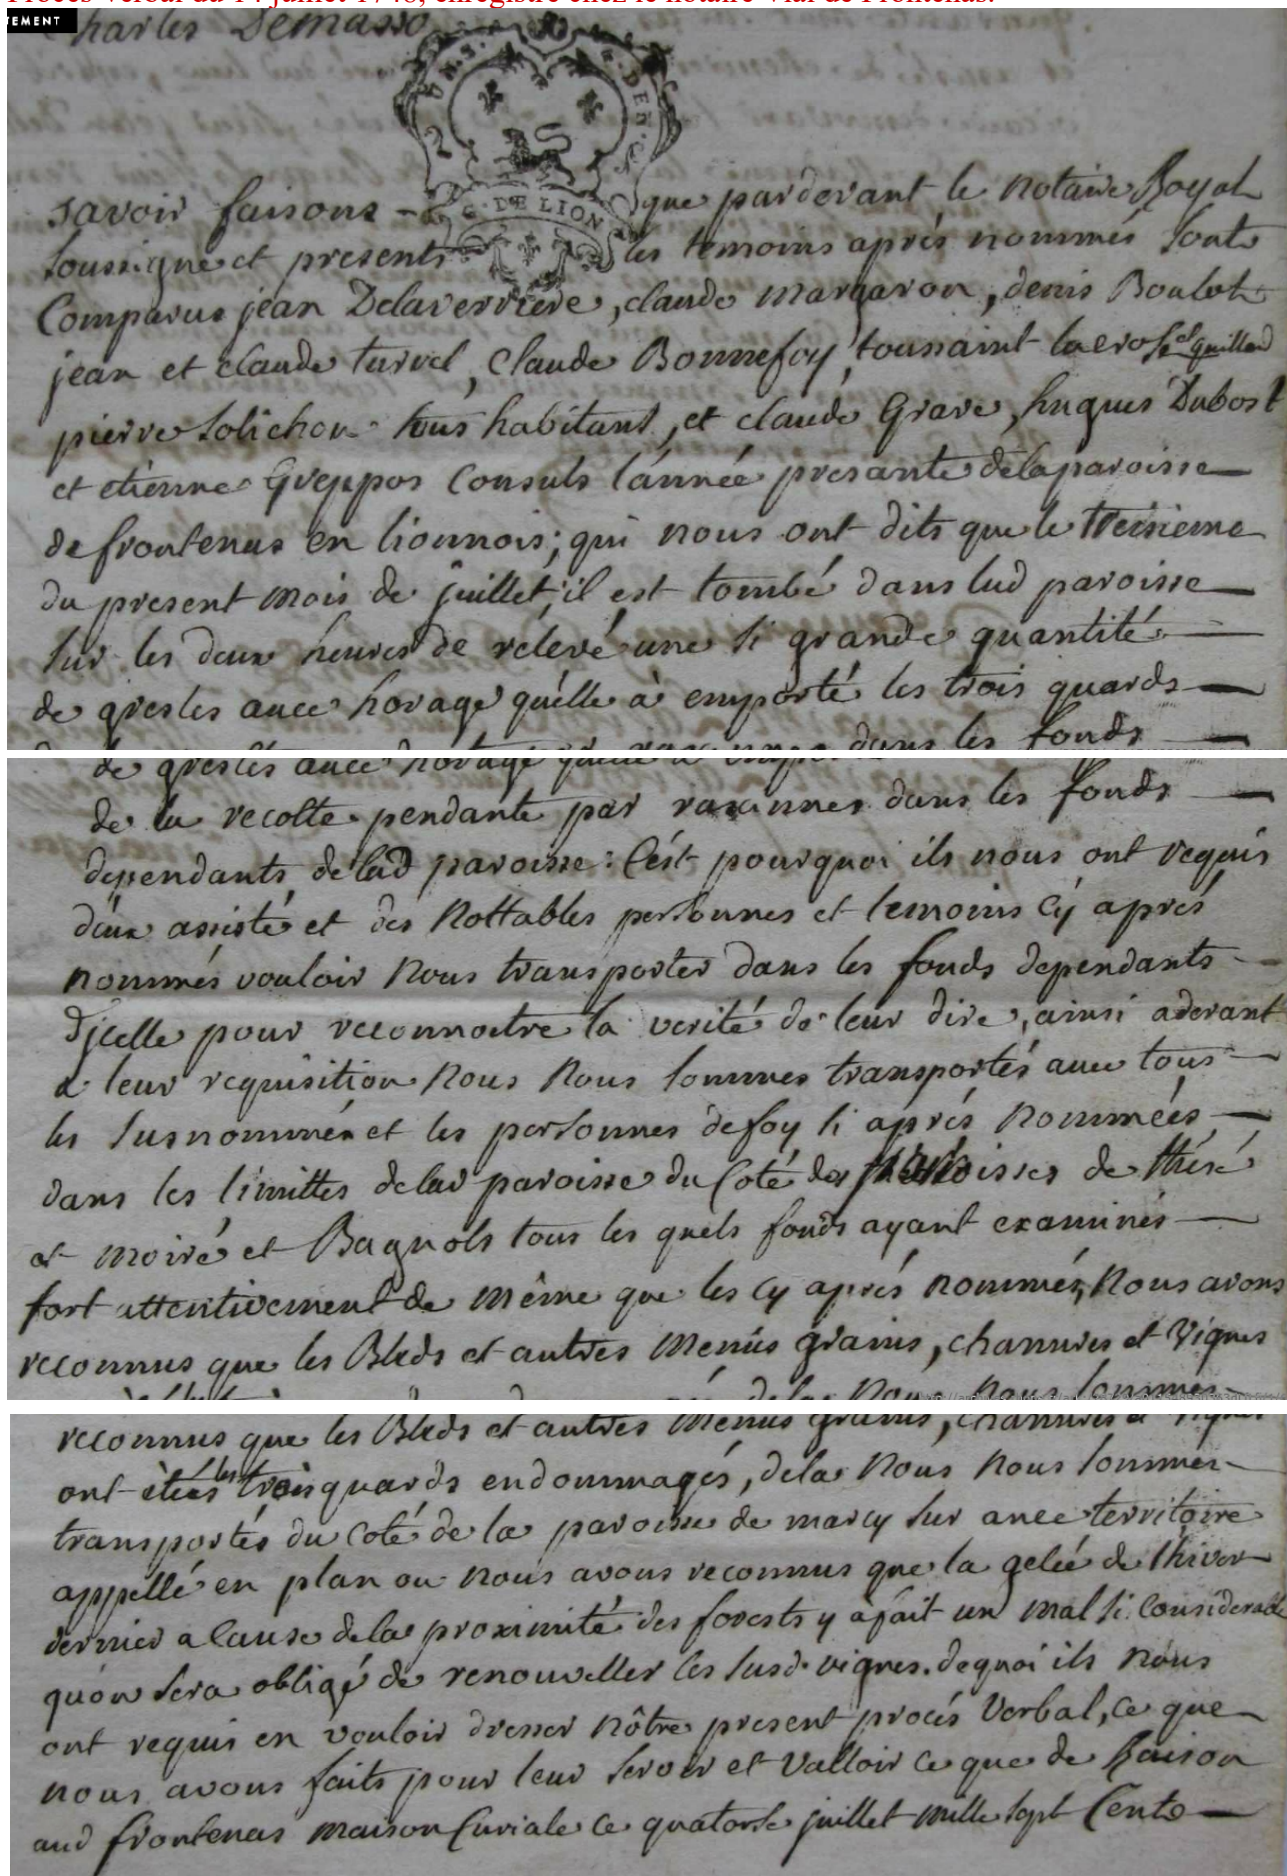 Procès verbal du 14 juillet 1748, enregistré chez le notaire Vial de Frontenas.
TEMENT
Charles Demasso
G. DE LION
savoir faisons que pardevant le notaire Royal
soussigné et presents les temoins aprés nommés sonts
Comparus jean Delaverriere, claude margaron, denis Boulot
jean et claude turrel, Claude Bonnefoy, toussaint
pierre Solichon tous habitans, et claude Grave, hugues Dubost
et etienne Greppos Consuls l'année presante de la paroisse
de frontenas en lionnois; qui nous ont dits que le treisieme
du present mois de juillet, il est tombé dans lad paroisse
sur les deux heures de relevé une si grande quantité
de gresles avec horage qu'elle à emporté les trois quards
de la recolte pendante par raxinnes dans les fonds
dependants de lad paroisse: C'ést pourquoi ils nous ont requis
d'éux assisté et des Nottables personnes et temoins cy aprés
nommés vouloir Nous transporter dans les fonds dependants
d'jcelle pour reconnoitre la verité de leur dire, ainsi aderant
a leur requisition Nous Nous sommes transportés avec tous
les susnommés et les personnes de foy si aprés Nommées
dans les limittes de lad paroisse du Coté des paroisses de thésé
et moiré et Bagnols tous les quels fonds ayant examinés
fort attentivement de même que les cy aprés nommés, Nous avons
reconnus que les Bleds et autres Menús grains, chanvres et Vignes
ont étées les trois quards endommagés, de la Nous Nous sommes
transportés du Coté de la paroisse de marcy sur anse territoire
appellé en plan ou nous avons reconnus que la gelée de l'hiver
dernier a Cause de la proximité des forests y a fait un mal si Considerable
qu'on sera obligé de renouveller les susd. vignes. de quoi ils nous
ont requis en vouloir dresser nôtre present procés Verbal, ce que
nous avons faits pour leur servir et Valloir ce que de Raison
aud frontenas maison Curiale ce quatorse juillet mille sept Cents